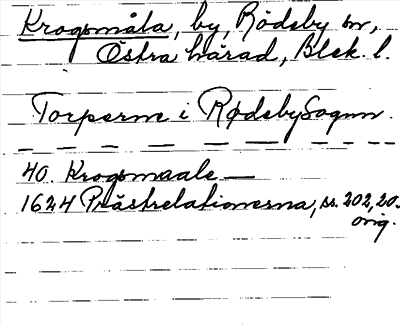 Krogsmåla, by, Rödeby sn,
Östra härad, Blek. l.
Torperne i Rødeby Sognn.
40. Krogsmaale —
1624 Prästrelationerna, ss. 202, 20.
orig.